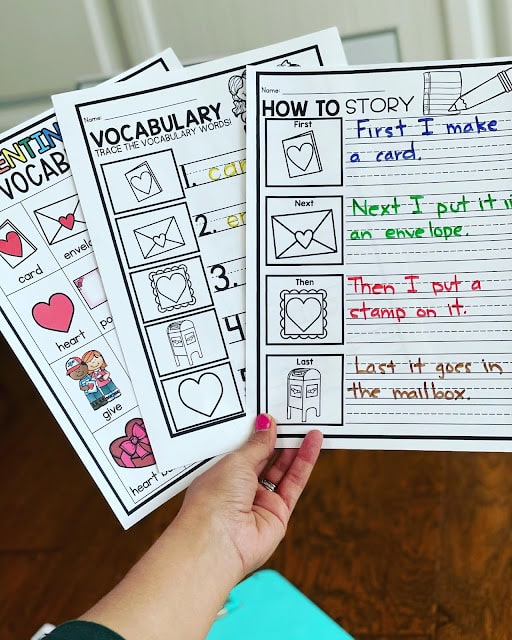 VOCAB
card
heart
give
Name:
VOCABULARY
TRACE THE VOCABULARY WORDS!
1.
2.
3.
4
Name:
HOW TO STORY
First
First I make
a card.
Next
Next I put it
an envelope.
Then
Then I put a
stamp on it.
Last
Last it goes in
the mailbox.